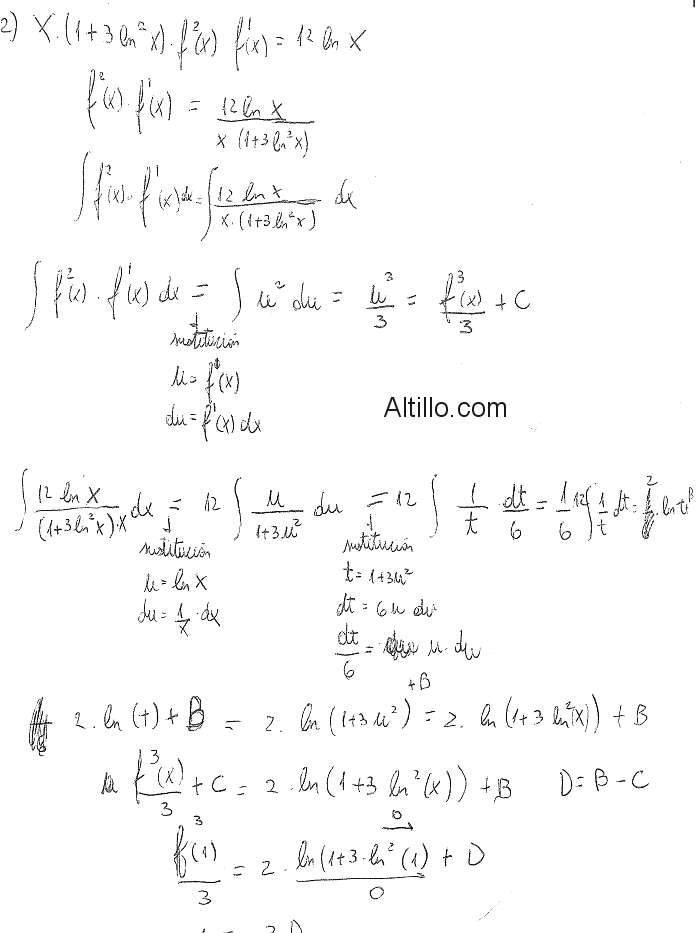 2) x·(1+3 ln²x)·f²(x) f'(x) = 12 ln x
f²(x)·f'(x) = 12 ln x / x·(1+3 ln²x)
∫ f²(x)·f'(x) dx = ∫ 12 ln x / x·(1+3 ln²x) dx
∫ f²(x)·f'(x) dx = ∫ u² du = u³/3 = f³(x)/3 + C
sustitución
u = f(x)
du = f'(x) dx
Altillo.com
∫ 12 ln x / (1+3 ln²x)·x dx = 12 ∫ u / 1+3u² du = 12 ∫ 1/t dt/6 = 1/6 12 ∫ 1/t dt = 2·ln t + B
sustitución sustitución
u = ln x t = 1+3u²
du = 1/x·dx dt = 6u du
dt/6 = u·du
2·ln(t) + B = 2·ln(1+3u²) + B = 2·ln(1+3 ln²(x)) + B
f³(x)/3 + C = 2·ln(1+3 ln²(x)) + B D = B − C
f³(1)/3 = 2·ln(1+3·ln²(1)) + D
0
0